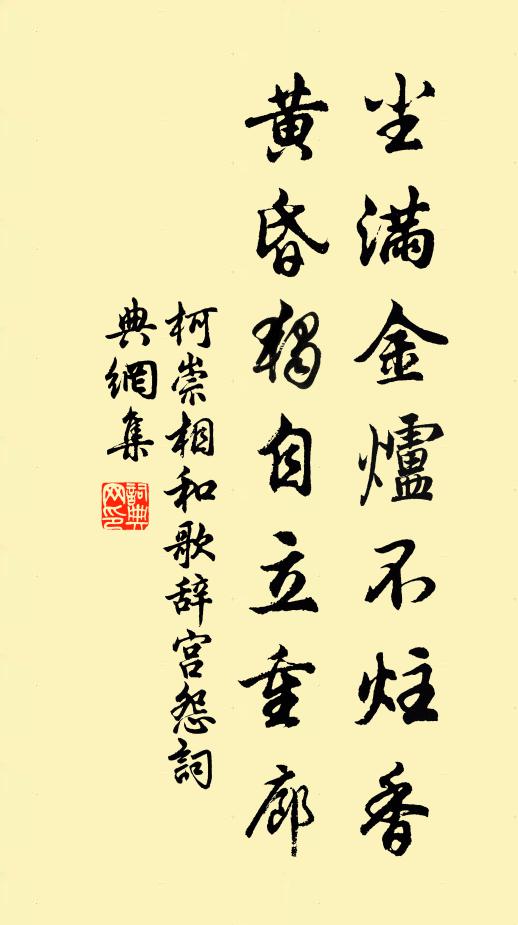 尘滿金爐不炷香
黄昏獨自立重廊
柯崇相和歌辞宫怨詞
典網集
詞典
网印